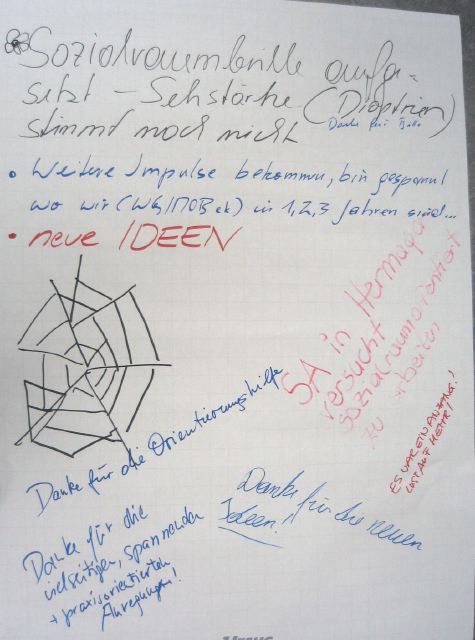 Sozialraumbrille aufge-
setzt – Sehstärke (Dioptrien)
Danke für
stimmt noch nicht
• Weitere Impulse bekommen, bin gespannt
wo wir (WG/MOB etc) in 1,2,3 Jahren sind...
• neue IDEEN
SA in Hermagor
versucht
sozialraumorientiert
zu arbeiten
ES WAR EIN ANFANG!
LUST AUF MEHR!
Danke für die Orientierungshilfe
Danke für die neuen
Ideen!
Danke für die
vielseitigen, spannenden
+ praxisorientierten
Anregungen!